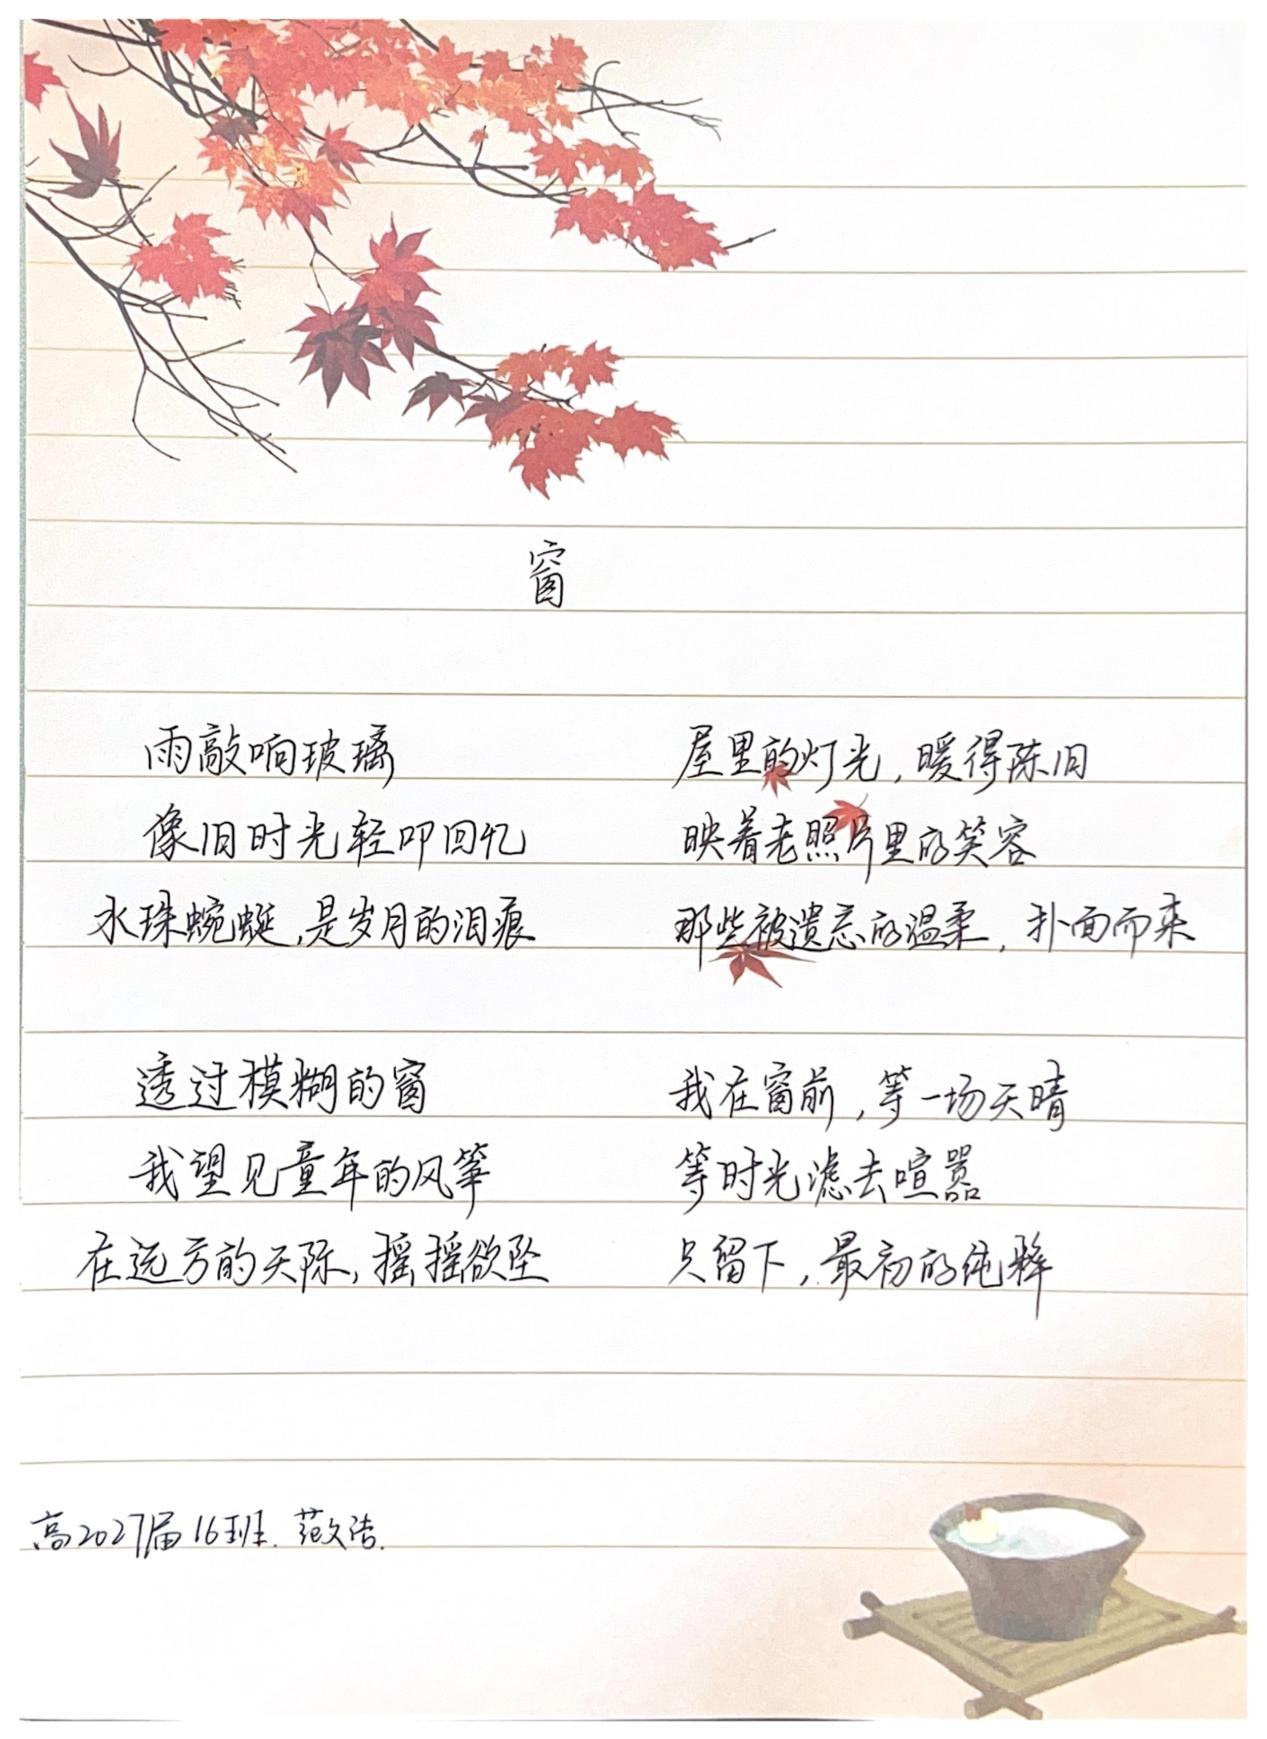 窗
雨敲响玻璃
像旧时光轻叩回忆
水珠蜿蜒,是岁月的泪痕
透过模糊的窗
我望见童年的风筝
在远方的天际,摇摇欲坠
屋里的灯光,暖得陈旧
映着老照片里的笑容
那些被遗忘的温柔,扑面而来
我在窗前,等一场天晴
等时光滤去喧嚣
只留下,最初的纯粹
高2027届16班.范文洁.